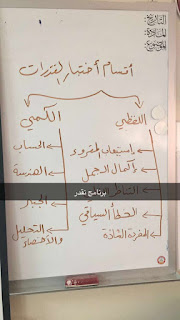 التاريخ:
المادة:
الموضوع:
أقسام أختبار القدرات
اللفظي
الكمي
إستيعاب المقروء
إكمال الجمل
التناظر
الخطأ السياقي
المفردة الشاذة
الحساب
الهندسة
الجبر
التحليل
والإحصاء
برنامج نقدر